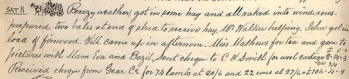 SAT 11 Breezy weather, got in some hay and all raked into windrows
prepared, two bales at end of shed to receive hay, Mr Walker helping, John got in
load of firewood. Will came up in afternoon. Miss Mathews for tea and gone to
pictures with Mam Eva and Bazil, sent cheque to C W Smith for wool
Received cheque from Gear Co for 74 lambs at 20/6 and 22 ewes at 27/6 = £106-4-9